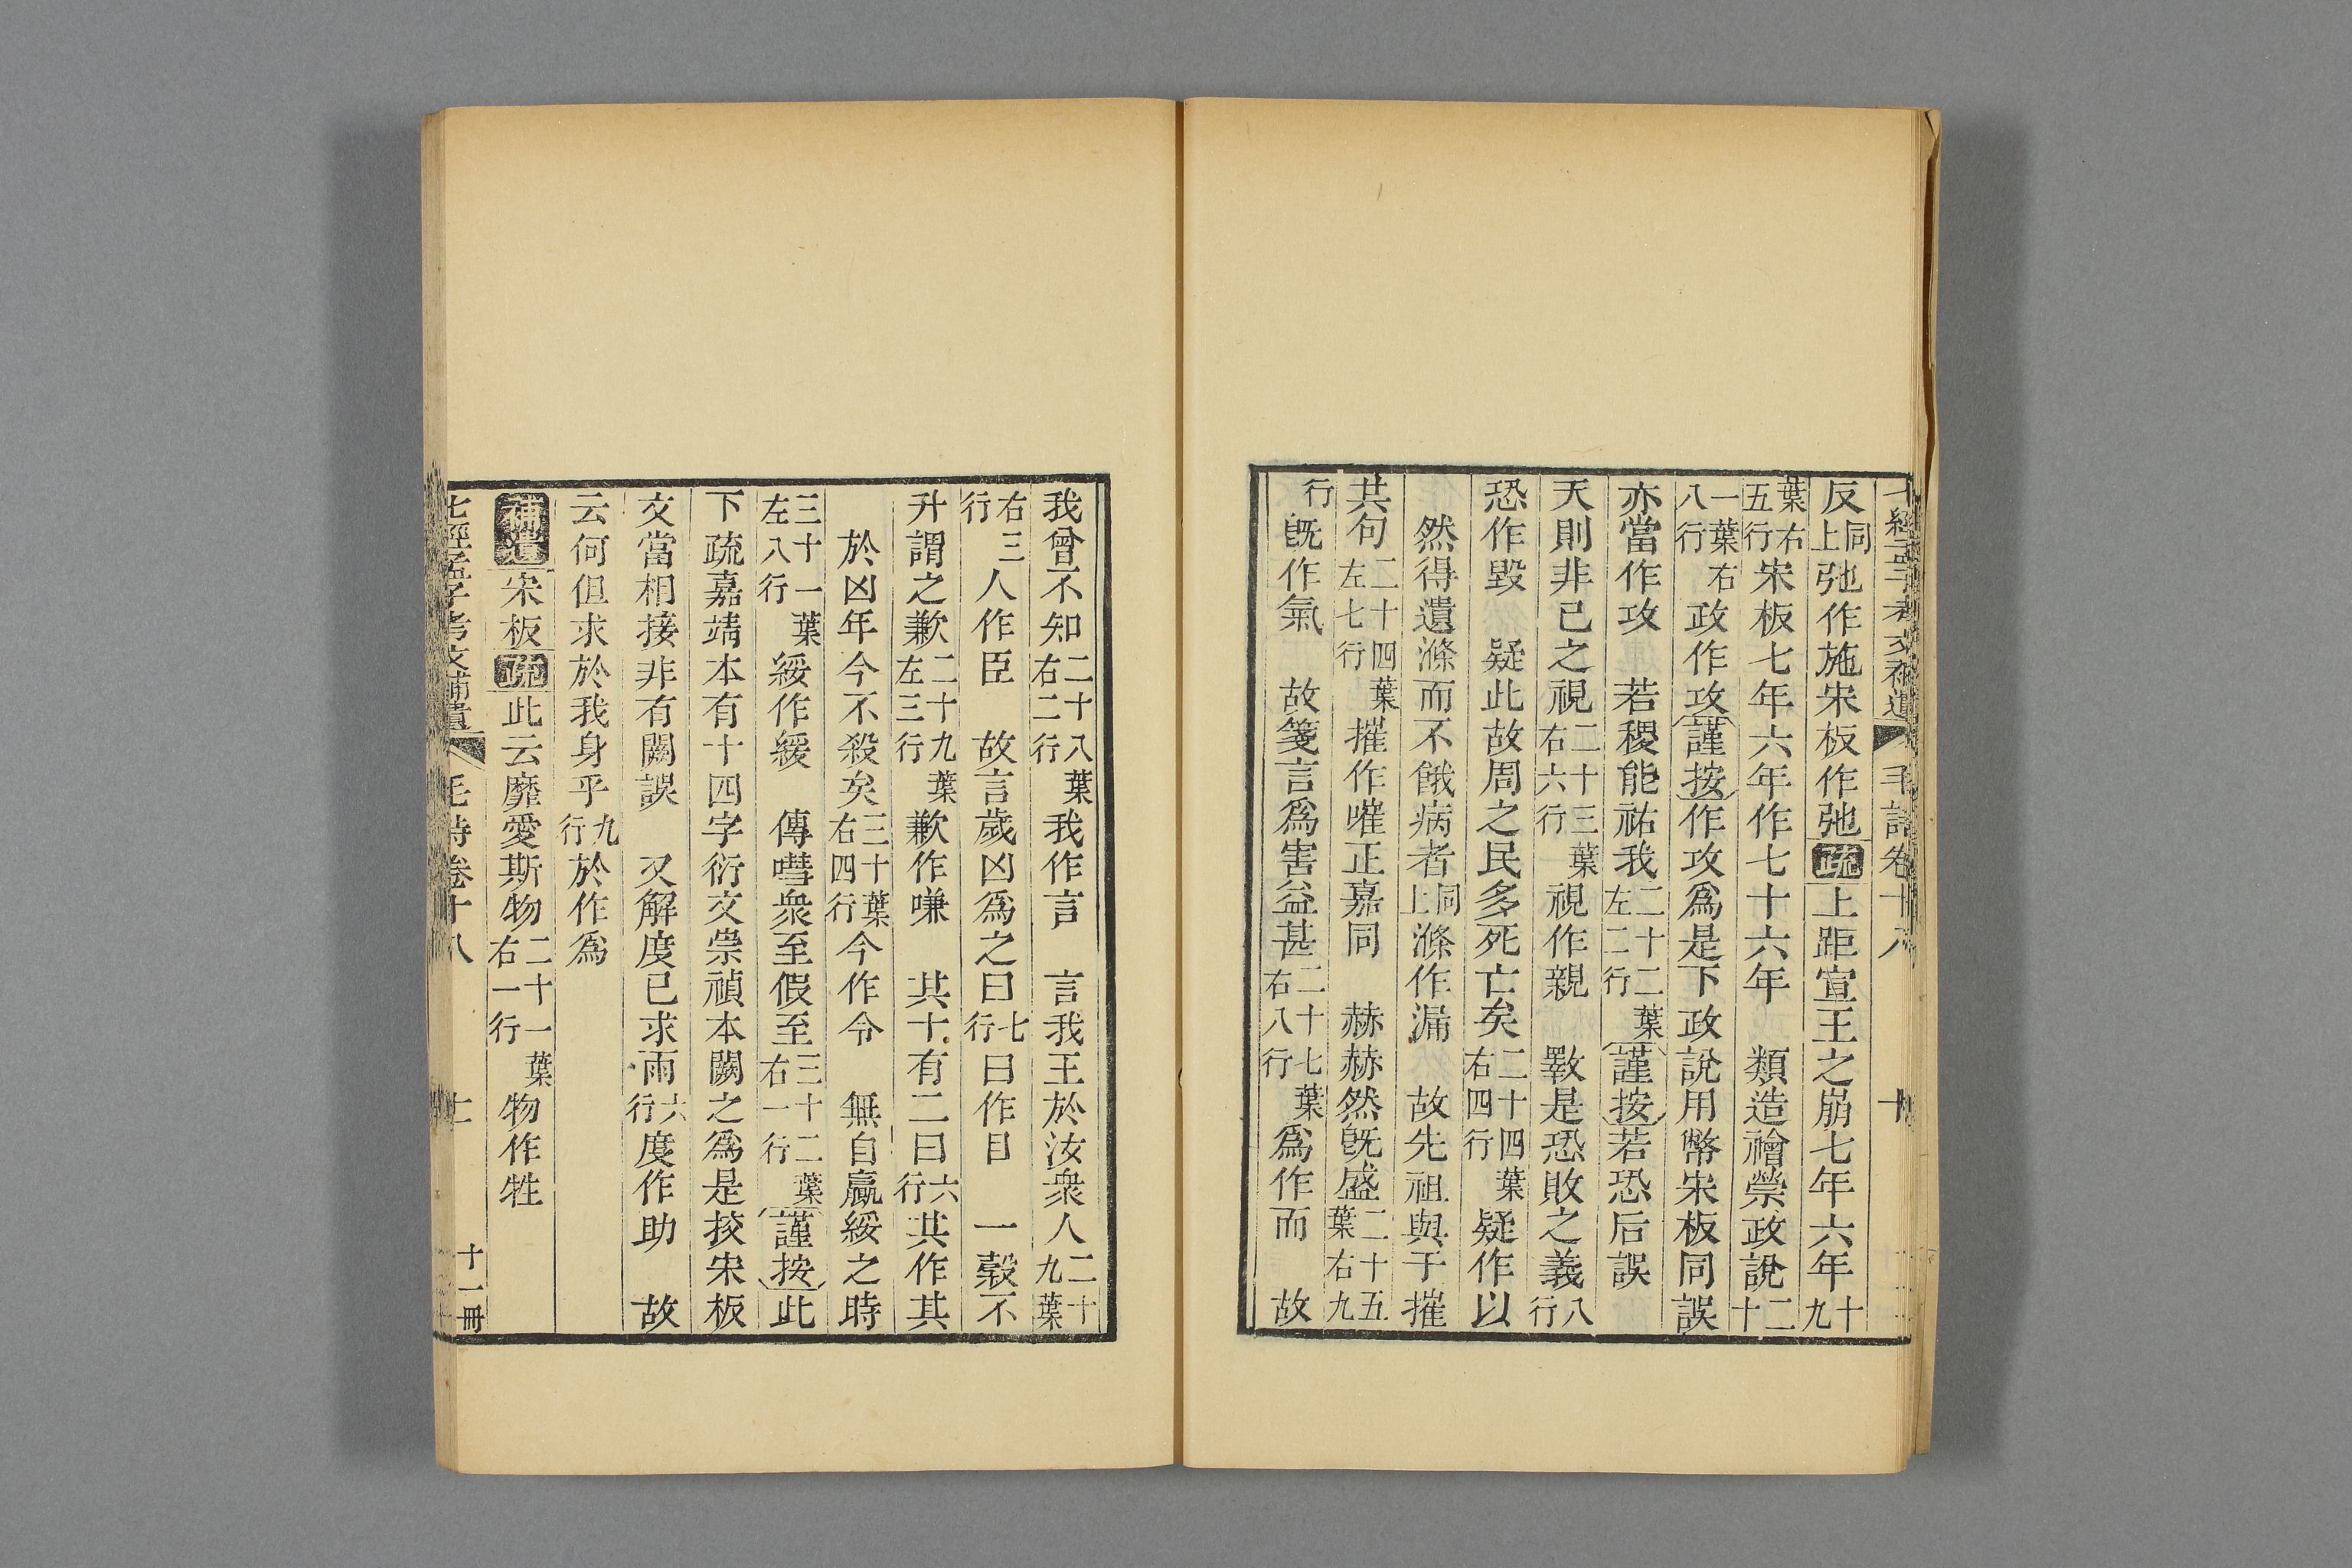 反同上弛作施宋板作弛疏上距宣王之崩七年六年十九
葉右五行宋板七年六年作七十六年 類造禬禜政說二十
一葉右八行政作攻謹按作攻爲是下政說用幣宋板同誤
亦當作攻 若稷能祐我二十二葉左二行謹按若恐后誤
天則非已之視二十三葉右六行視作親 斁是恐敗之義八行
恐作毀 疑此故周之民多死亡矣二十四葉右四行疑作以
然得遺滌而不餓病者同上滌作漏 故先祖與于摧
其句二十四葉左七行摧作嗺正嘉同 赫赫然旣盛二十五葉右九
行旣作氣 故箋言爲害益甚二十七葉右八行爲作而 故
我曾不知二十八葉右二行我作言 言我王於汝衆人二十九葉
右三行人作臣 故言歲凶爲之曰七行曰作目 一穀不
升謂之歉二十九葉左三行歉作嗛 其十有二曰六行其作其
於凶年今不殺矣三十葉右四行今作令 無自贏綏之時
三十一葉左八行綏作緩 傳嘒衆至假至三十二葉右一行謹按此
下疏嘉靖本有十四字衍文崇禎本闕之爲是挍宋板
文當相接非有闕誤 又解度已求雨六行度作助 故
云何但求於我身乎九行於作爲
補遺宋板疏此云靡愛斯物二十一葉右一行物作牲
七經孟子考文補遺 毛詩卷十八 十一冊